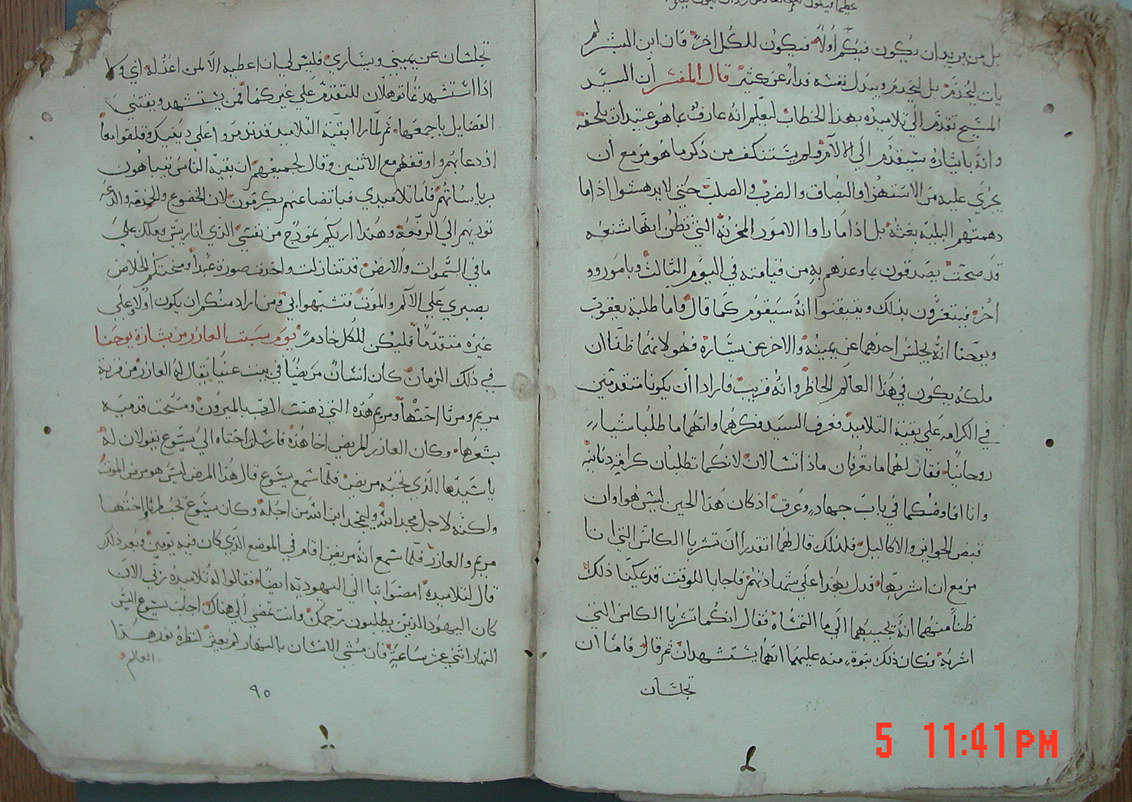 بل من يريد ان يكون فيكم أولاً فيكون للكل اخر فان ابن البشر لم
يات ليُخدَم بل ليَخدم ويبدل نفسه فداءً عن كثير قال المفسر ان السيد
المسيح تقدم الى تلاميذه بهذا الخطاب ليعلم انه عارف بما هو عتيد ان يلحقه
وانه بايثاره سيتقدم الى الالام ولم يستنكف من ذكر ما هو مزمع ان
يجري عليه من الاستهزا والبصاف والضرب والصلب حتى لا يدهشوا اذا ما
دهمتهم البلية بغتة بل اذا ما راوا الامور المحزنة التي تظن ايضا شنعه
قد صحت يصدقون بما وعدهم به من قيامته في اليوم الثالث وبامور
اخر فيتعزون بذلك ويتيقنوا انه سيقوم كما قال واما طلبة يعقوب
ويوحنا انه يجلس احدهما عن يمينه والاخر عن يساره فهو لانهما ظنا ان
ملكه يكون في هذا العالم الحاظر وانه قريب فارادا ان يكونا متقدمين
في الكرامه على بقية التلاميذ فعرف السيد فكرهما وانهما ما طلبا شيا
روحانيا فقال لهما ما تعرفان ماذا تسالان لانكما تطلبان كرامة دنيانيه
وانا افاوضكما في باب جهاد وعرق اذ كان هذا الحين ليس هو اوان
قبض الجوايز والاكاليل فلذلك قال لهما اتقدرا ان تشربا الكاس التي انا
مزمع ان اشربها فدل بهذا على شهادتهم فاجابا للوقت قد يمكننا ذلك
ظناً منهما انه يجيبهما الى ما التمساه فقال انكما تشربا الكاس التي
اشربها وكان ذلك نبوة منه عليهما انهما يستشهدان ثم قال فاما ان
تجلسان
تجلسان عن يميني ويساري فليس لي ان اعطيه الا لمن اعد له اي ولا
اذا استشهدتما توهلان للتقدم على غيركما ممن يستشهد ويقتني
الفضايل باجمعها ثم لما راا بقية التلاميذ قد تذمروا على ذينك وقلقوا معاً
اذ دعاهم واوقفهم مع الاثنين وقال لجميعهم ان بقية الناس يتباهون
برياساتهم فاما تلاميذي فباتضاعهم يكرمون لان الخضوع والخدمه والدعه
توديهم الى الرفعة وهذا اريكم نموذج من نفسي الذي انا ريس وملك على
ما في السموات والارض قد تنازلت واخذت صورة عبداً ومنحتكم الخلاص
بصبري على الالم والموت فتشبهوا بي ومن اراد منكم ان يكون اولاً وعلى
غيره متقدماً فليكن للكل خادم يوم سبت العازر من بشارة يوحنا
في ذلك الزمان كان انسان مريضاً في بيت عنيا يقال له العازر من قرية
مريم ومرثا اختها ومريم هذه التي دهنت الرب بالميرون ومسحت قدميه
بشعرها وكان العازر المريض اخا هذه فارسل اختاه الى يسوع تقولان له
يا سيد ها الذي تحبه مريض فلما سمع يسوع قال هذا المرض ليس هو مرض الموت
ولكنه لاجل مجد الله وليمجد ابن الله من اجله وكان يسوع يحب مرثا واختها
مريم والعازر فلما سمع انه مريض اقام في الموضع الذي كان فيه يومين وبعد ذلك
قال لتلاميذه امضوا بنا الى اليهودية ايضا فقالوا له تلاميذه ربي الان
كان اليهود الذين يطلبون رجمك وانت تمضي الى هناك اجاب يسوع اليس
النهار اثني عشر ساعة فان مشى الانسان بالنهار لم يعثر لنظره نور هذا
العالم
٩٥
5 11:41PM